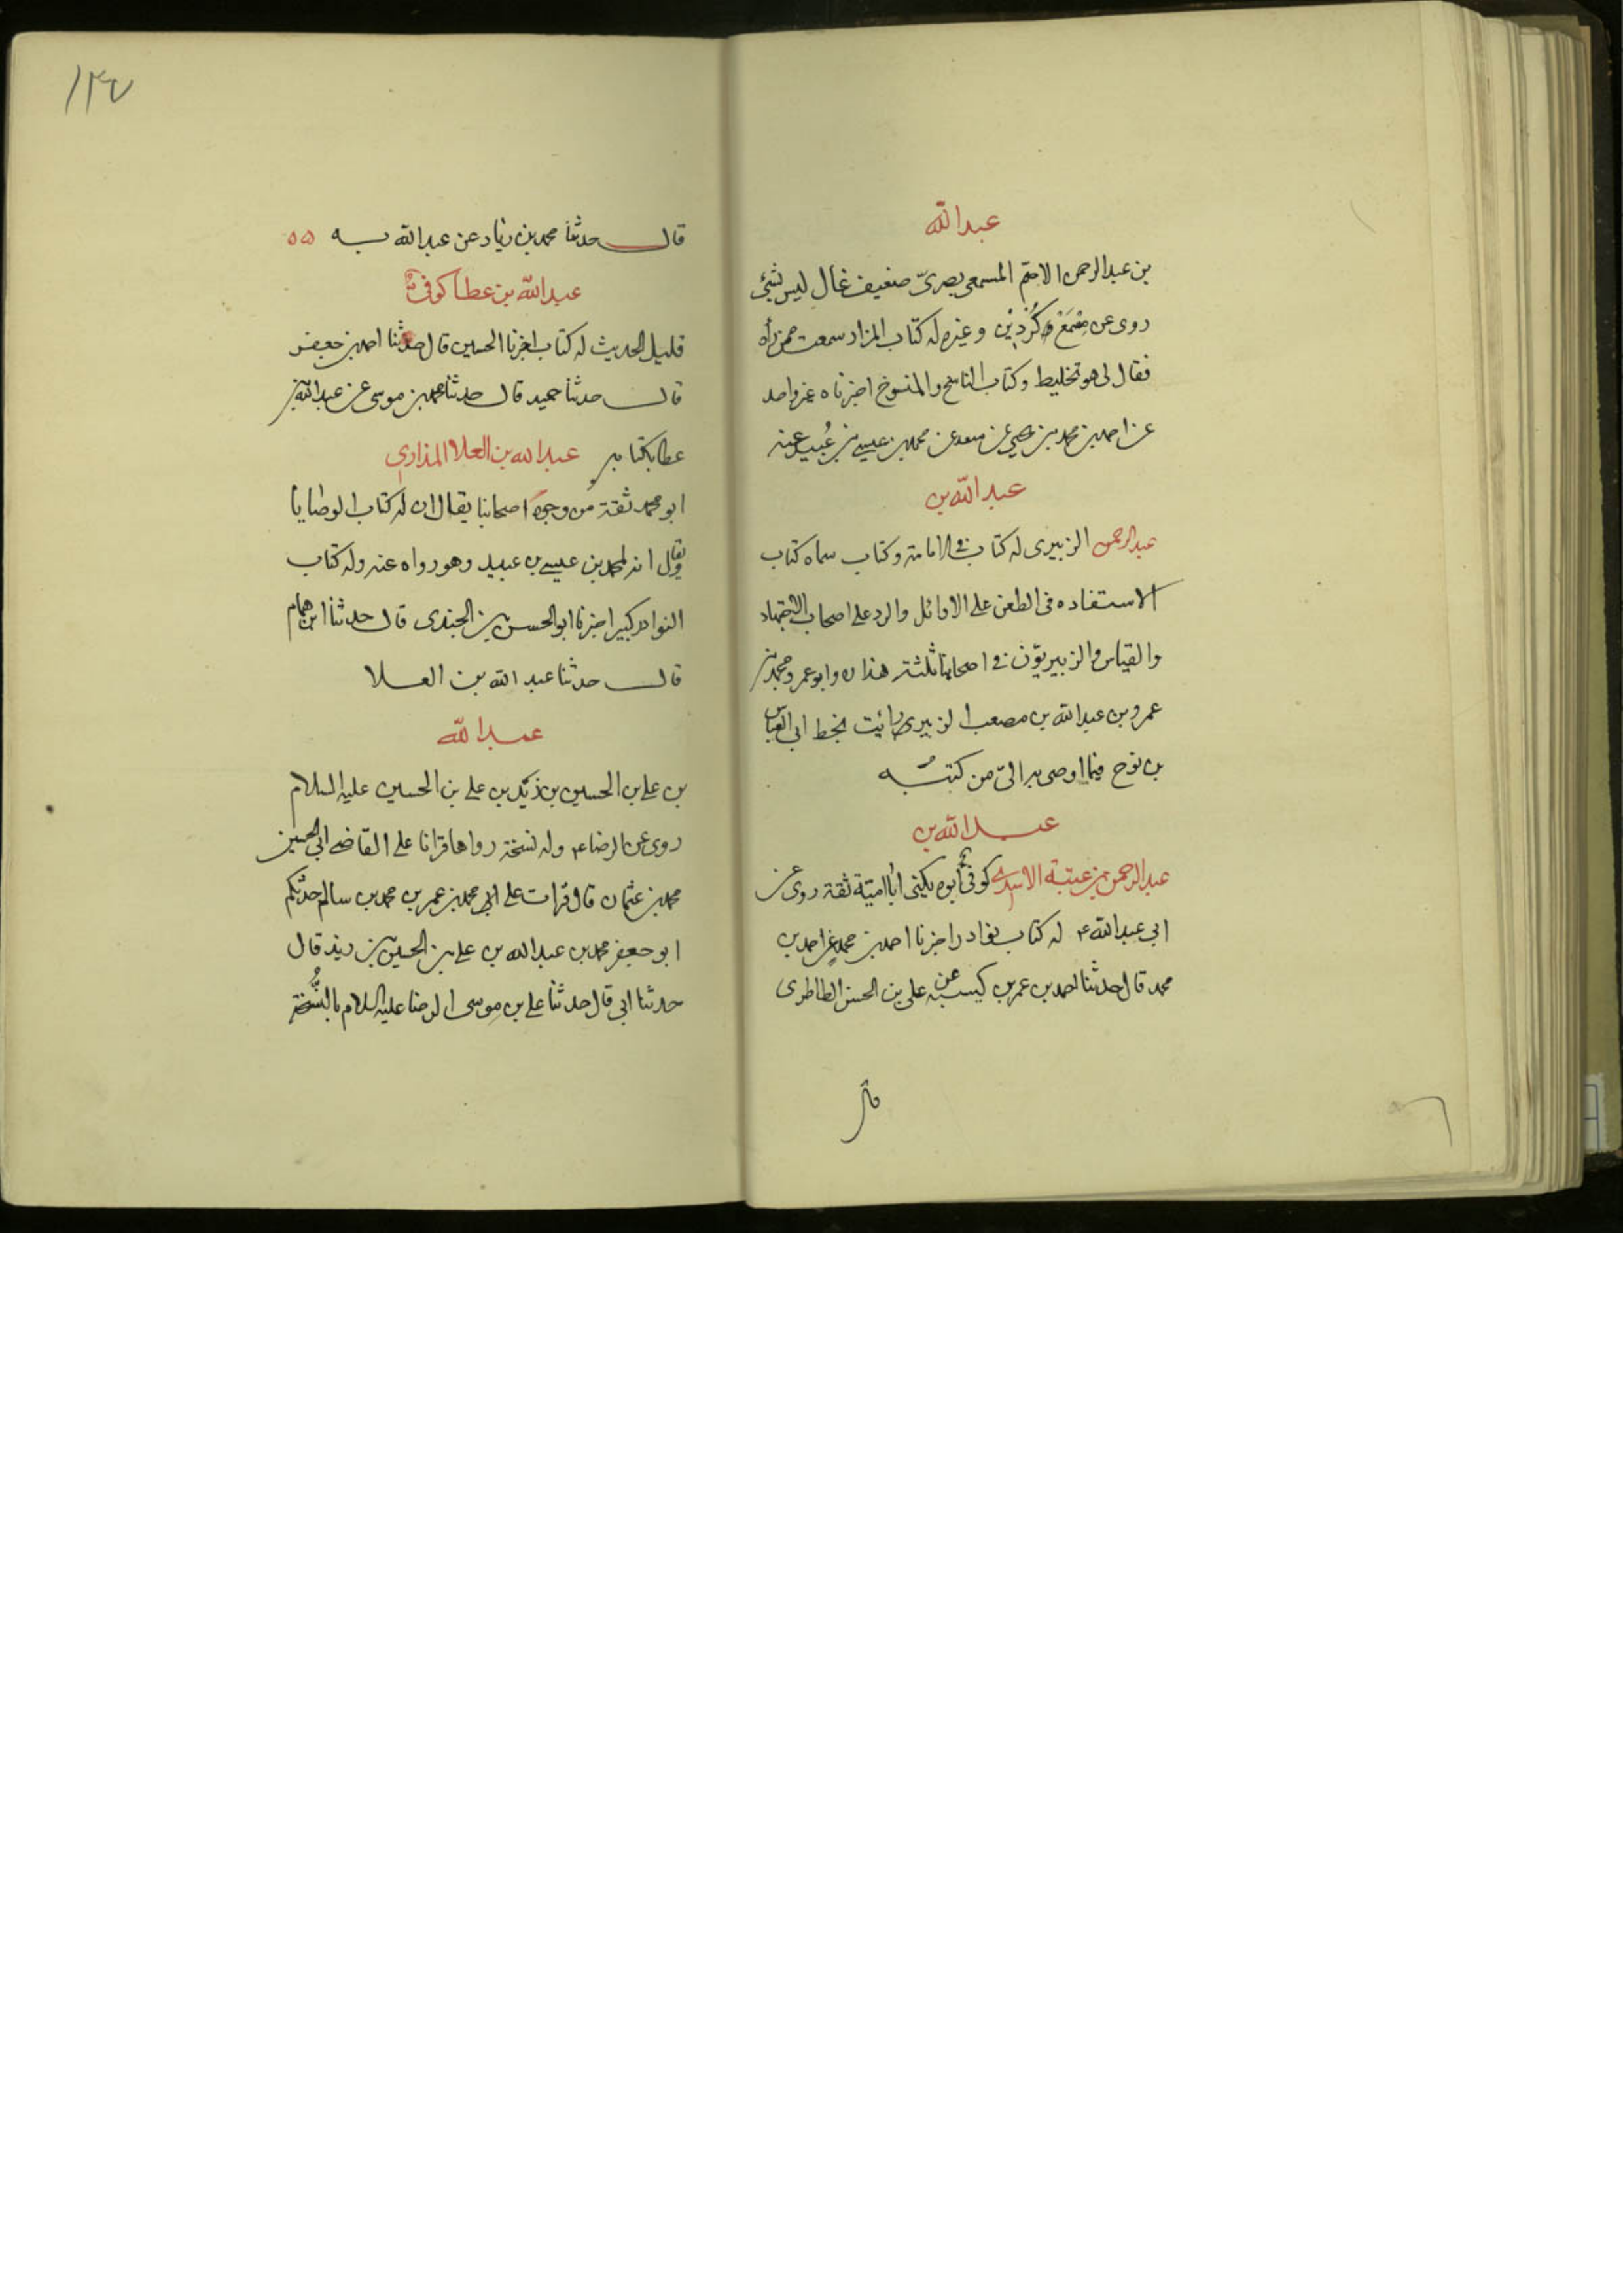 عبد الله
بن عبد الرحمن الاصم المسمعي بصريّ ضعيف غال ليس بشئ
روى عن مِسْمَعْ كُرْدِيْن وغيره له كتاب المزار سمعت ممن رأه
فقال لي هو تخليط وكتاب الناسخ والمنسوخ اخبرناه غير واحد
عن احمد بن محمد بن يحيى عن سعد عن محمد بن عيسى بن عُبيد عنه
عبد الله بن
عبد الرحمن الزبيرى له كتاب في الامامة وكتاب سماه كتاب
الاستفاده في الطعن على الاوائل والرد على اصحاب الاجتهاد
والقياس والزبيريّون في اصحابنا ثلثة هذان وابو عمرو محمد بن
عمرو بن عبد الله بن مصعب الزبيرى رايت بخط ابى العباس
بن نوح فيما اوصى به الىّ من كتبه
عبد الله بن
عبد الرحمن بن عتبة الاسدي كوفي أبوه يكنى ابا امتية ثقة روى عن
ابى عبد الله ع له كتاب نوادر اخبرنا احمد بن محمد عن احمد بن
محمد قال حدثنا احمد بن عمر بن كيسبه عن على بن الحسن الطاطرى
قال
١٣٧
قال حدثنا محمد بن زياد عن عبد الله به ۵۵
عبد الله بن عطا كوفي
قليل الحديث له كتاب اخبرنا الحسين قال حدثنا احمد بن جعفر
قال حدثنا حميد قال حدثنا محمد بن موسى عن عبد الله بن
عطا بكتابه عبد الله بن العلا المذارى
ابو محمد ثقة من وجوه اصحابنا يقال ان له كتاب الوصايا
ويقال انه لمحمد بن عيسى بن عبيد وهو رواه عنه وله كتاب
النوادر كبير اخبرنا ابو الحسن بن الجندى قال حدثنا ابن همام
قال حدثنا عبد الله بن العلا
عبد الله
بن على بن الحسين بن زيد بن على بن الحسين عليه السلام
روى عن الرضا ع وله نسخة رواها قرانا على القاضى ابى الحسين
محمد بن عثمان قال قرات على ابى محمد بن عمر بن محمد بن سالم حدثكم
ابو جعفر محمد بن عبد الله بن على بن الحسين بن زيد قال
حدثنا ابي قال حدثنا على بن موسى الرضا عليه السلام بالنُّسخة